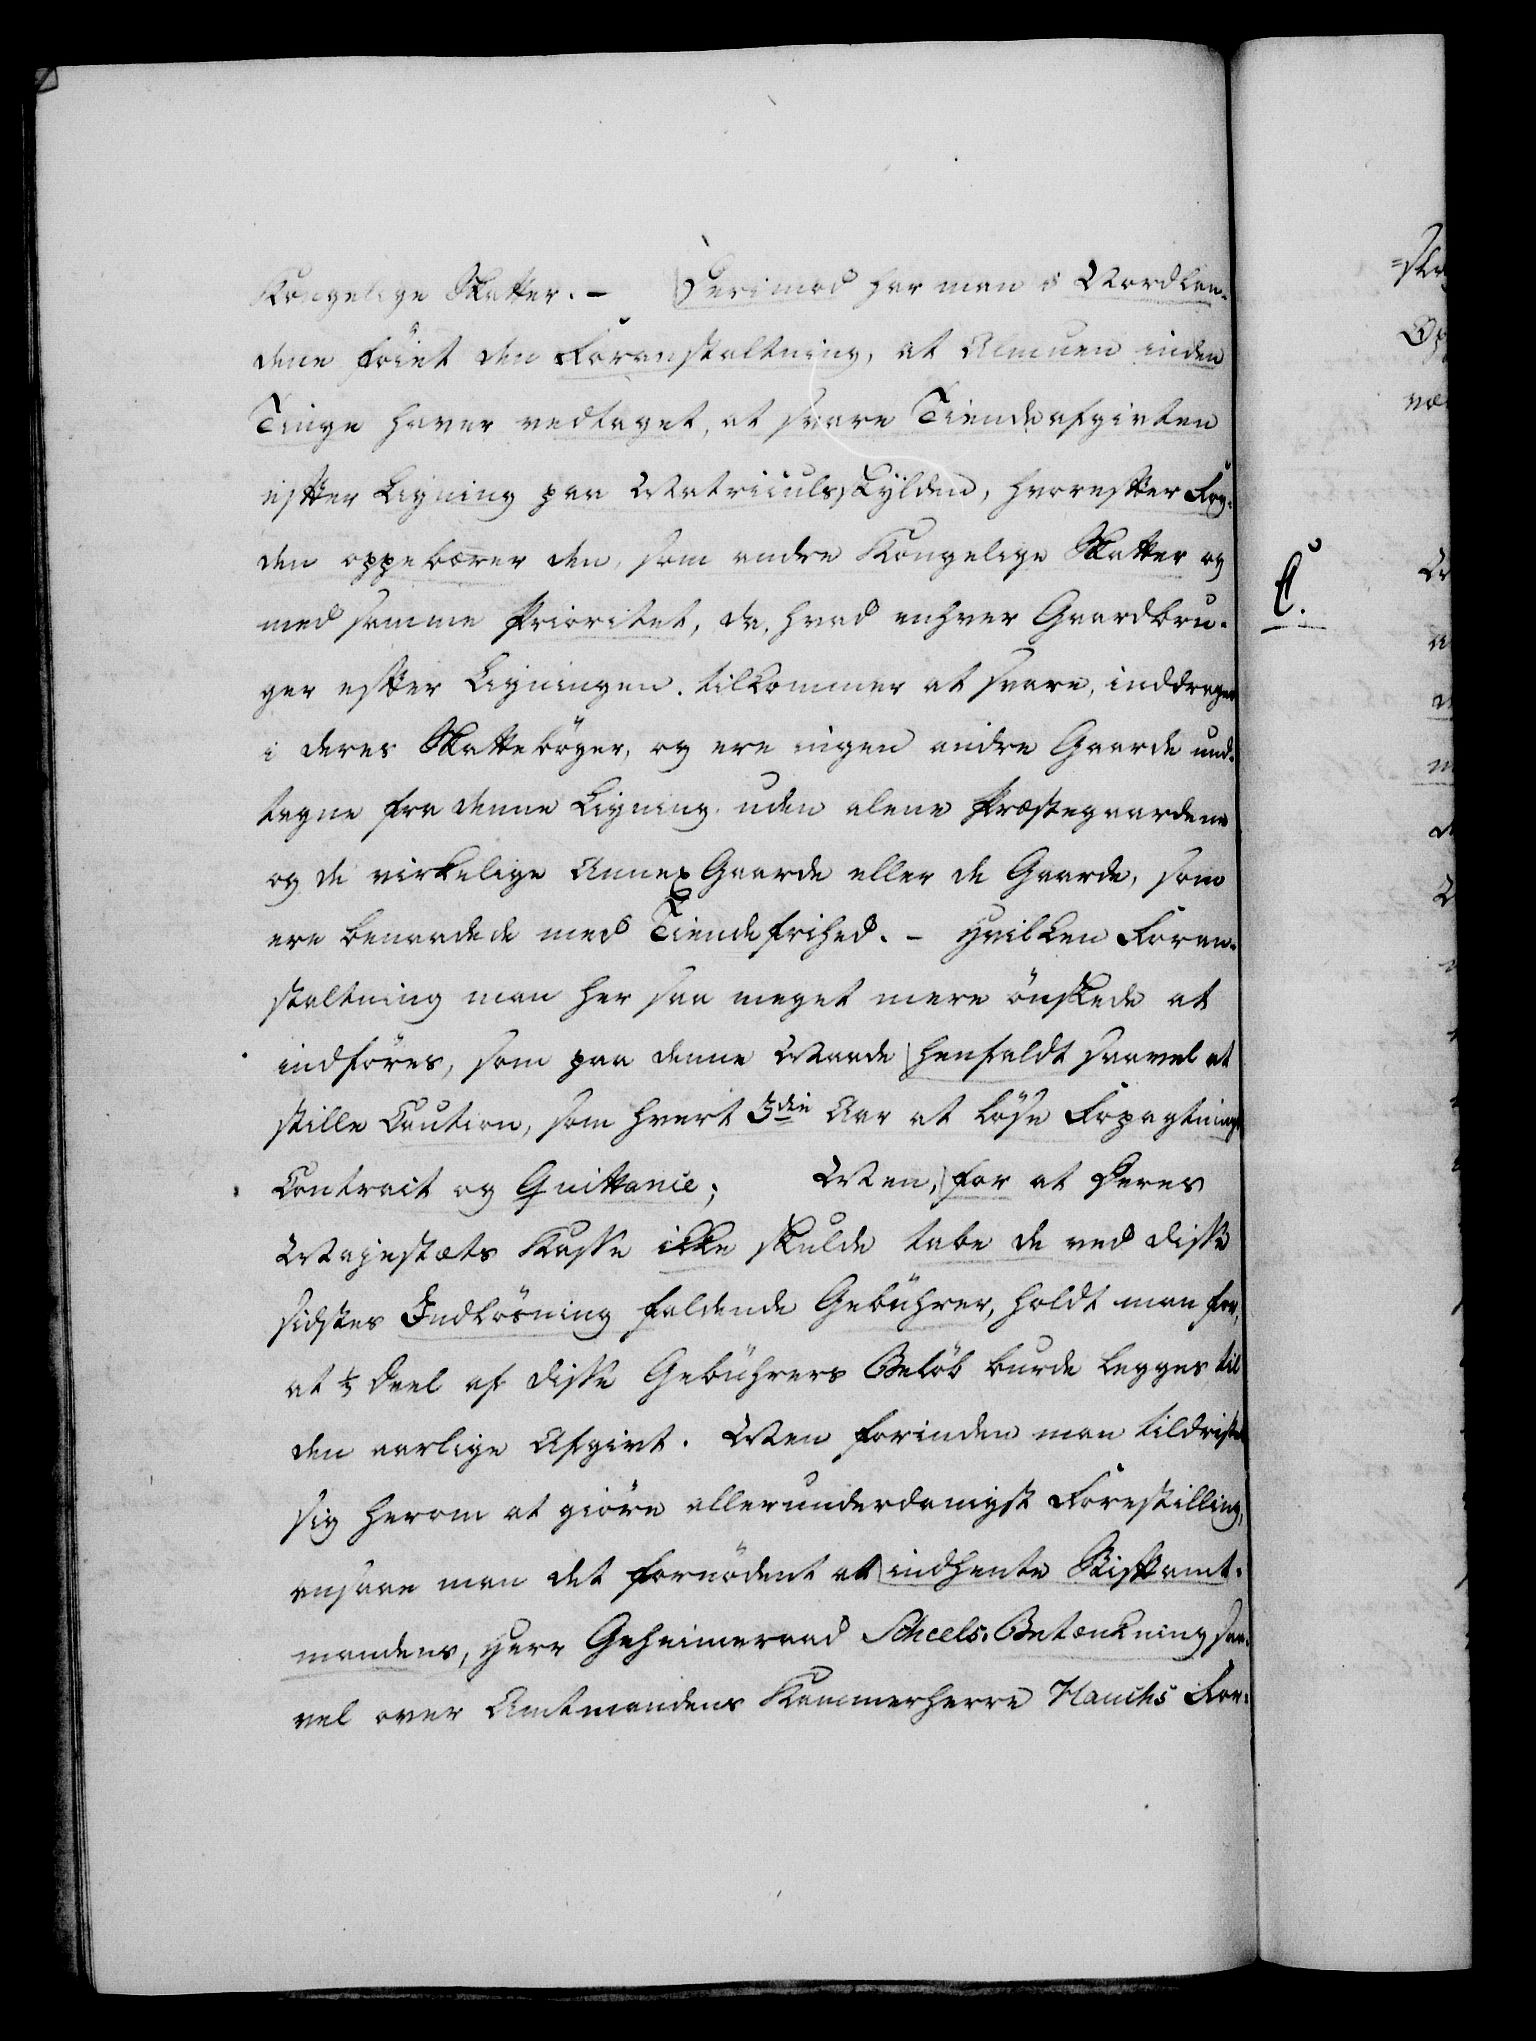 Kongelige Skatter. – Derimod har man i Nordlan-
dene föiet den Foranstaltning, at Almuen inden
Tinge haver vedtaget, at svare Tiendeafgivten
efter Ligning paa Matriculskylden, hvorefter Fog-
den oppebærer den, som andre Kongelige Skatter og
med samme Prioritet, da, hvad enhver Gaardbru-
ger efter Ligningen tilkommer at svare, inddrages
i deres Skattebøger, og ere ingen andre Gaarde und-
tagne fra denne Ligning, uden alene Præstegaardene
og de virkelige Annex Gaarde eller de Gaarde, som
ere benaadede med Tiendefrihed. – Hvilken Foran-
staltning man her saa meget mere önskede at
indföres, som paa denne Maade henfaldt saavel at
stille Caution, som hvert 3die Aar at löse Forpagtnings
Contract og Quittance; Men, for at Deres
Majestæts Kasse ikke skulde tabe de ved disse
sidstes Indlösning faldende Gebührer, holdt man for,
at 1/3 Deel af disse Gebührers Belöb burde legges til
den aarlige Afgivt. Men forinden man tildristede
sig herom at giöre allerunderdanigst Forestilling,
ansaae man det fornödent at indhente Stiftamt-
mandens, Herr Geheimeraad Scheels Betænkning saa-
vel over Amtmandens Kammerherre Hauchs For-
C.